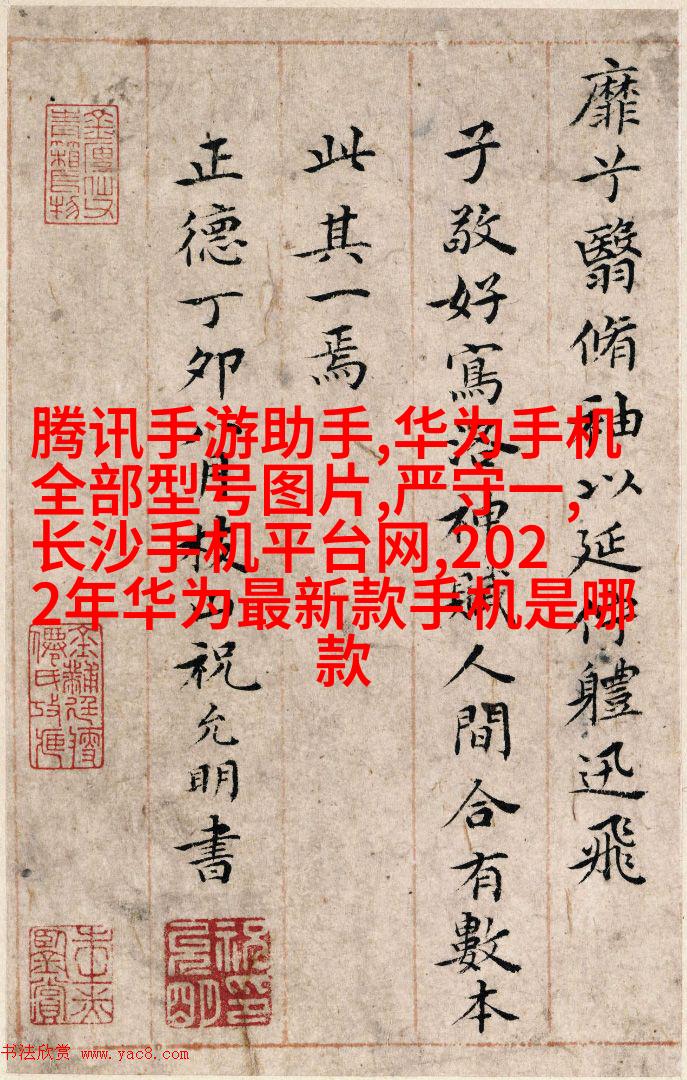 靡兮翳脩袖以延佇體迅飛
子敬好寫洛神賦人間合有數本
此其一焉
正德丁卯八月枝山祝允明書
腾讯手游助手,华为手机
全部型号图片,严守一,
长沙手机平台网,202
2年华为最新款手机是哪
款
书法欣赏 www.yac8.com